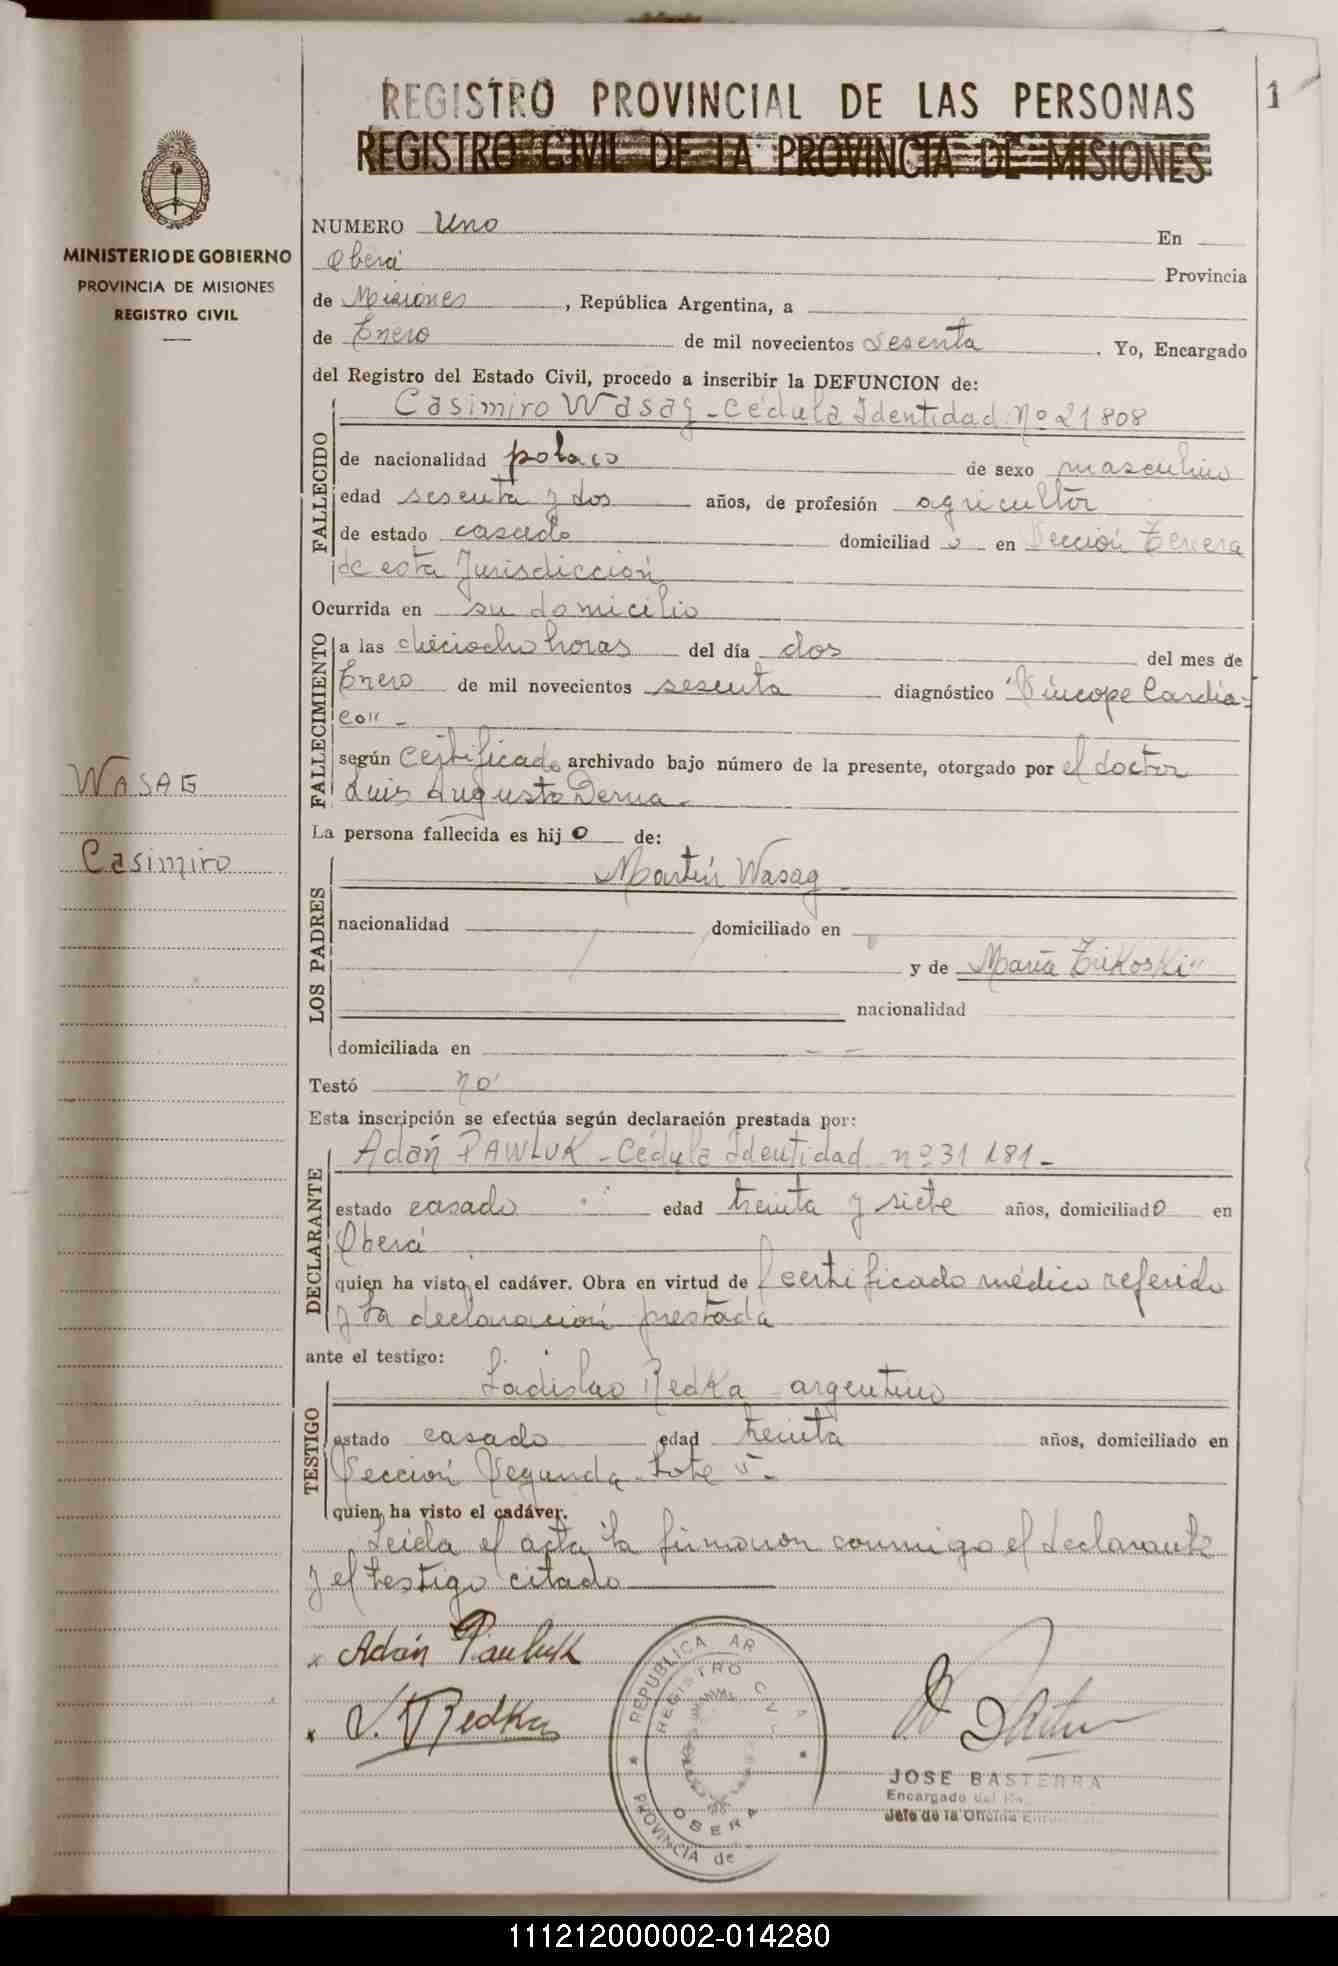 REGISTRO PROVINCIAL DE LAS PERSONAS
1
REGISTRO CIVIL DE LA PROVINCIA DE MISIONES
MINISTERIO DE GOBIERNO
PROVINCIA DE MISIONES
REGISTRO CIVIL
NUMERO Uno En
Oberá Provincia
de Misiones, República Argentina, a
de Enero de mil novecientos sesenta. Yo, Encargado
del Registro del Estado Civil, procedo a inscribir la DEFUNCION de:
FALLECIDO
Casimiro Wasag - Cédula Identidad Nº 21808
de nacionalidad polaco de sexo masculino
edad sesenta y dos años, de profesión agricultor
de estado casado domiciliad o en Sección Tercera
de esta Jurisdicción
Ocurrida en su domicilio
FALLECIMIENTO
a las dieciocho horas del día dos del mes de
Enero de mil novecientos sesenta diagnóstico "Síncope Cardía-
co" -
según certificado archivado bajo número de la presente, otorgado por el doctor
Luis Augusto Derna -
WASAG
Casimiro
La persona fallecida es hij o de:
LOS PADRES
Martín Wasag
nacionalidad domiciliado en
y de María
nacionalidad
domiciliada en
Testó no
Esta inscripción se efectúa según declaración prestada por:
DECLARANTE
Adán PAWLUK - Cédula Identidad nº 31181 -
estado casado edad treinta y siete años, domiciliado en
Oberá
quien ha visto el cadáver. Obra en virtud de certificado médico referido
y la declaración prestada
ante el testigo:
TESTIGO
Ladislao Redka argentino
estado casado edad treinta años, domiciliado en
Sección Segunda Lote 5 -
quien ha visto el cadáver.
Leída el acta la firmaron conmigo el declarante
y el testigo citado
x Adán Pauluk
x L. Redka
REPÚBLICA AR A
REGISTRO CIVIL
OBERA
PROVINCIA de
JOSE BASTERRA
Encargado del
Jefe de la Oficina
111212000002-014280